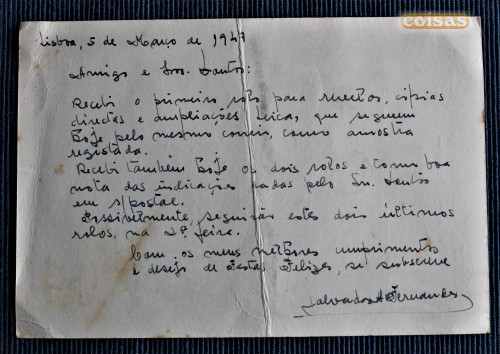 coisas
Lisboa, 5 de Março de 1947
Amigo e Snr. Santos:
Recebi o primeiro rolo para revelar, cópias
directas e ampliações Leica, que seguem
hoje pelo mesmo correio, como amostra
registada.
Recebi também hoje os dois rolos e tomo boa
nota das indicações dadas pelo Snr. Santos
em s/postal.
Possivelmente, seguirão estes dois últimos
rolos, na 2ª feira.
Com os meus melhores cumprimentos
e desejo de Festas Felizes, se subscreve
Salvador Fernandes